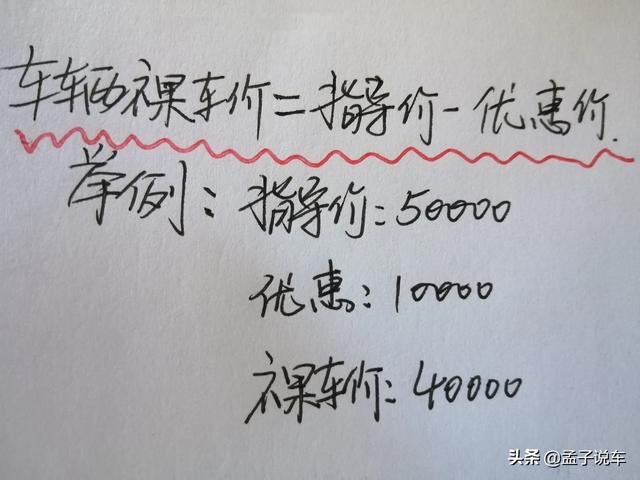 车辆裸车价=指导价-优惠价.
举例:指导价:50000
优惠:10000
裸车价:40000
头条 @孟子说车